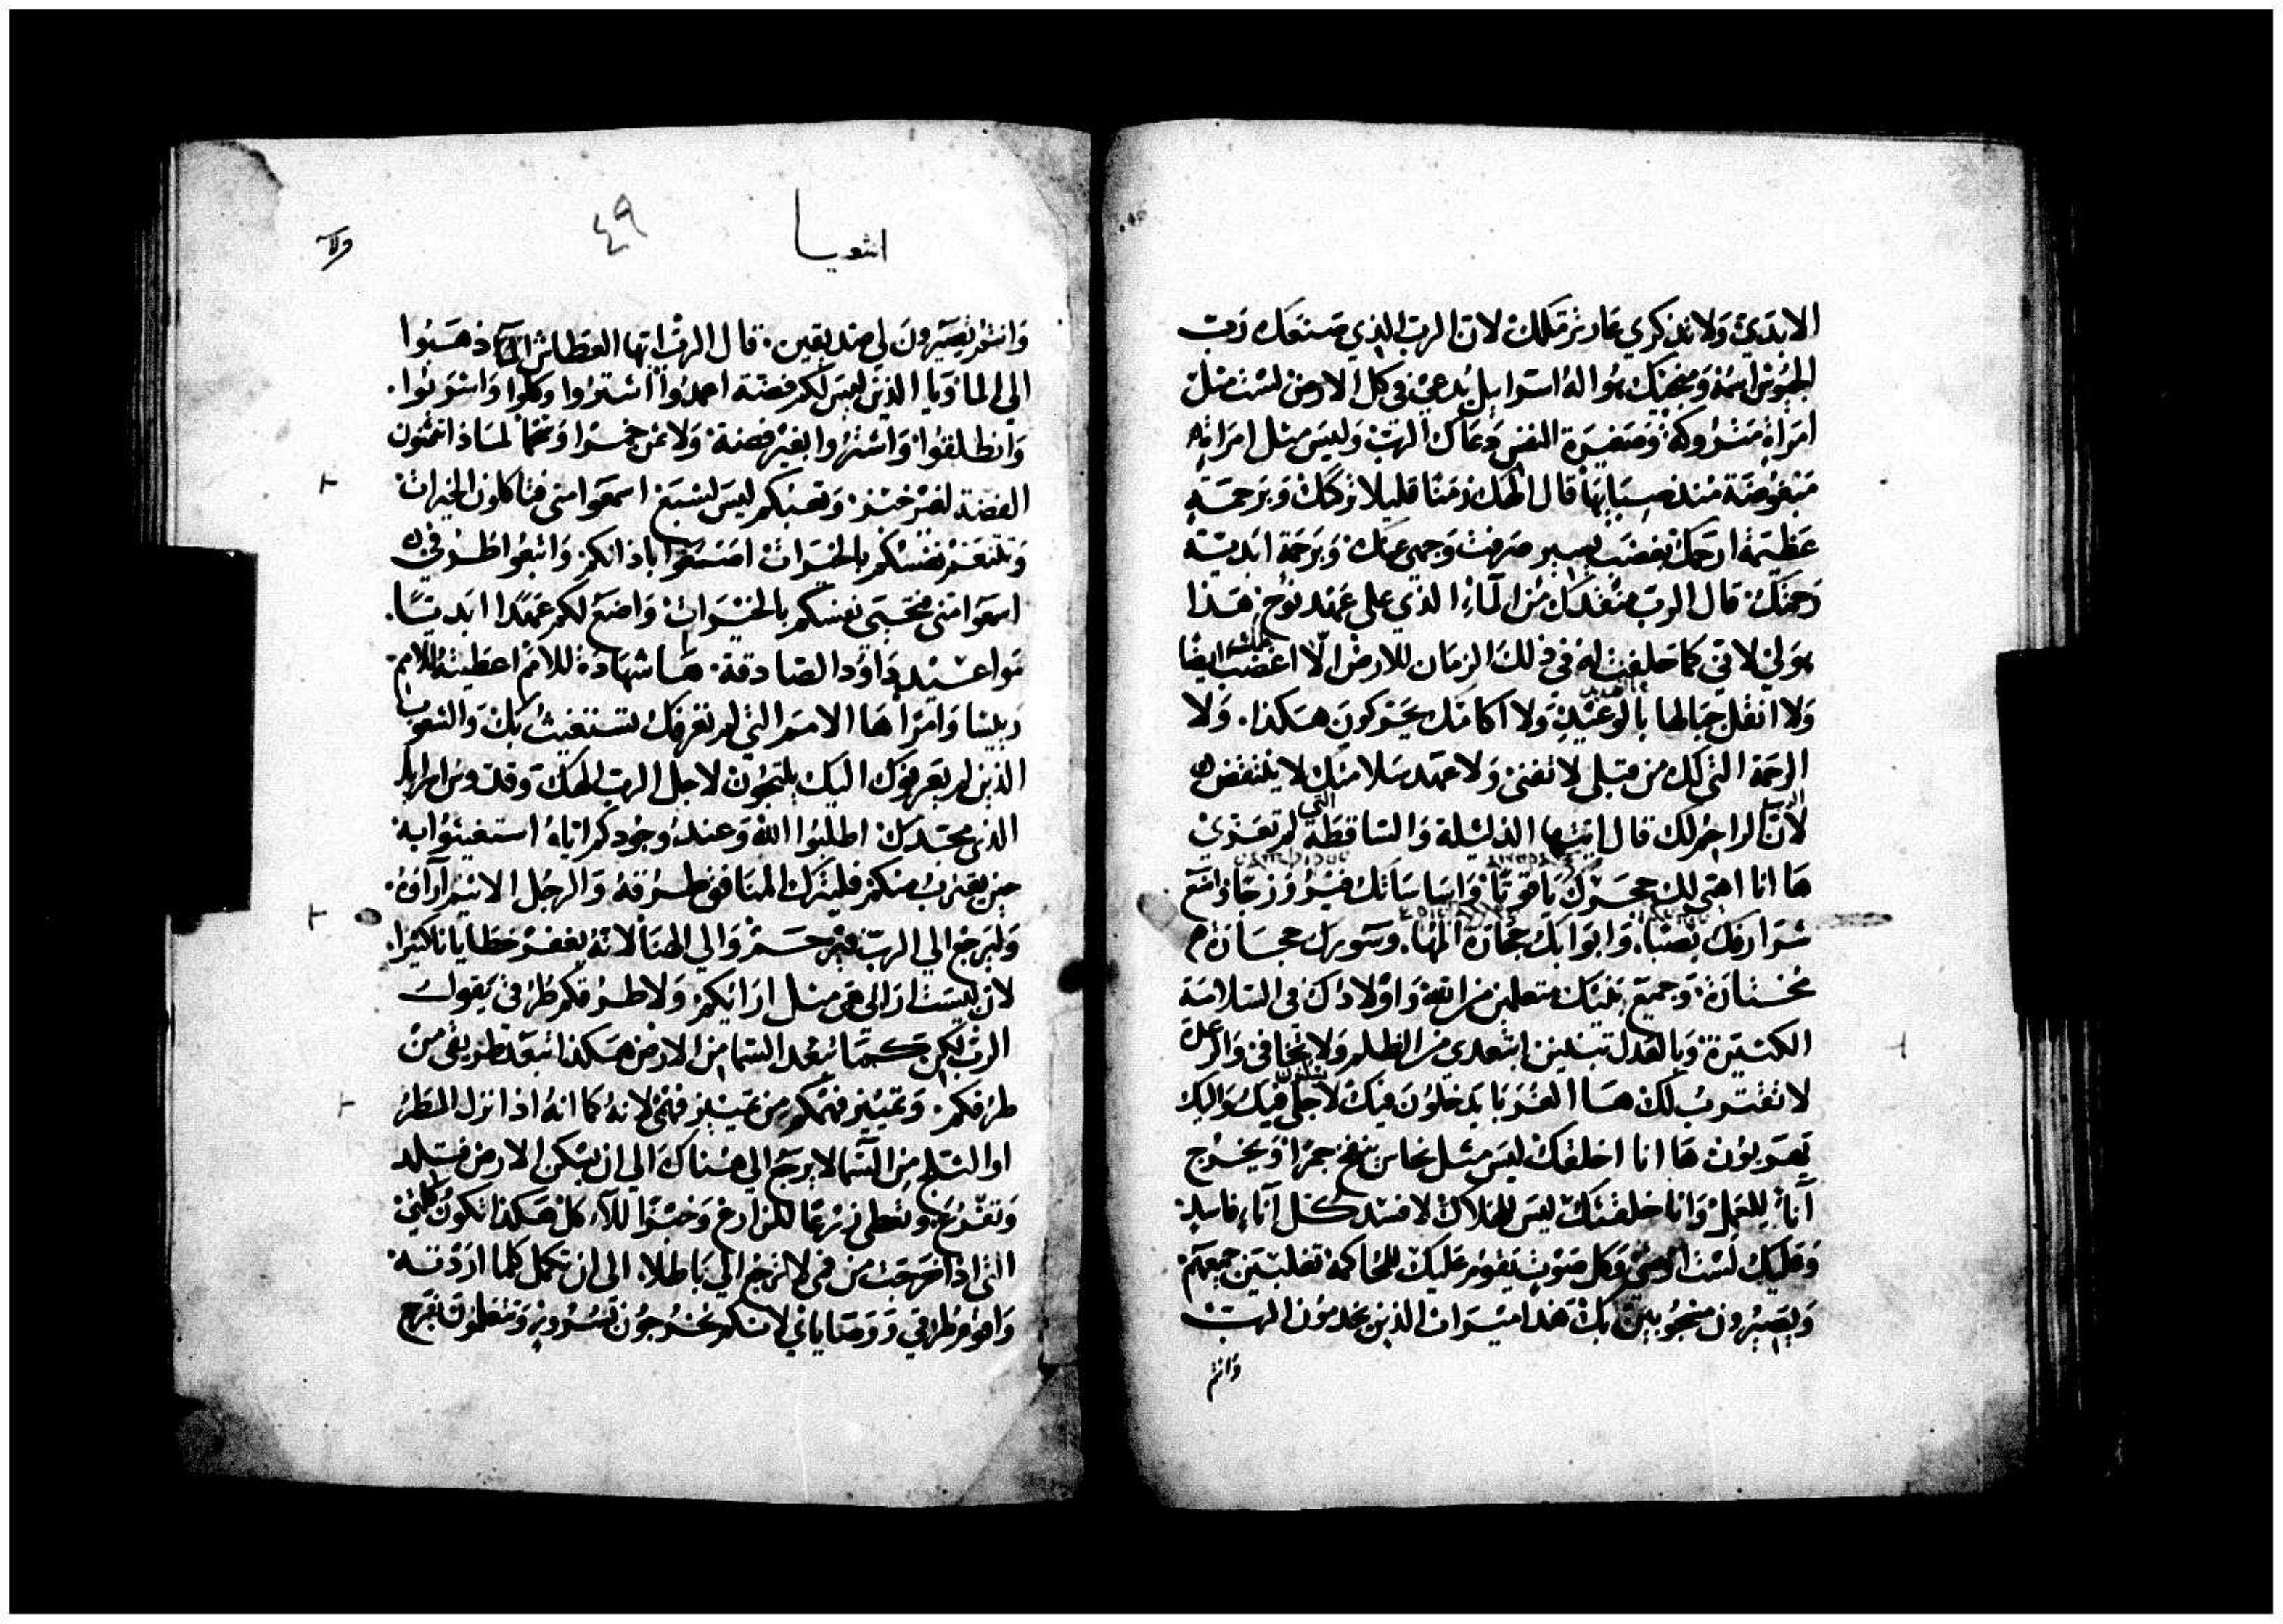 الابدي ولا تذكري عار ترملك لان الرب الذي صنعك رب
الجيوش اسمه ومنجيك هو اله اسراييل يدعي في كل الارض لست مثل
امراة متروكة وصغيرة النفس دعاك الرب وليس مثل امراة
مبغوضة منذ صباها قال الهك زمنا قليلا تركتك وبرحمة
عظيمة ارحمك بغضب يسير صرفت وجهي عنك وبرحمة ابدية
رحمتك قال الرب منقذك من الماء الذي علي عهد نوح هذا
هو لي لاني كما حلفت له في ذلك الزمان للارض الا اغضب عليك ايضا
ولا انقل جبالها بالوعيد ولا اكامك يتحركون هكذا ولا
الرحمة التي لك من قبلي لا تفنى ولا عهد سلامتك لا ينتقض
لان الراحم لك قال ايتها الذليلة والساقطة التي لم تعزي
ها انا اهيي لك حجرك ياقوتا واساساتك فيروزجا واضع
شرارفك يصبا وابوابك حجارة المها وسورك حجارة
مختارة وجميع بنيك متعلمين من الله واولادك في السلامة
الكثيرة وبالعدل تبنين ابتعدي من الظلم ولا تخافي والرعدة
لا تقترب لك ها الغربا يدخلون فيك لاجلي فيك واليك
يهربون ها انا اخلقك ليس مثل نحاس ينفخ جمرا ويخرج
آناء للعمل وانا خلقتك ليس للهلاك لافسد كل آناء فاسد
وعليك لست ارضي وكل صوت يقوم عليك للمحاكمة تغلبين جميعهم
ويصيرون محجوبين بك هذا ميراث الذين يخدمون الرب
وانتم
اشعيا
٤٩
وانتم تصيرون لي صديقين قال الرب ايها العطاش اذهبوا
الي الما ويا الذين ليس لكم فضة اعمدوا اشتروا وكلوا واشربوا
وانطلقوا واشتروا بغير فضة ولا ثمن خمرا وشحما لماذا تثمنون
الفضة لغير خبز وتعبكم ليس لشبع اسمعوا مني فتاكلون الخيرات
وتتنعم نفسكم بالخيرات انصتوا باذانكم واتبعوا طرقي
اسمعوا مني فتحيى نفسكم بالخيرات واضع لكم عهدا ابديا
مواعيد داود الصادقة ها شهادة للامم اعطيته للامم
رييسا وامرا ها الامم التي لم تعرفك تستغيث بك والشعوب
الذين لم يعرفوك اليك يلتجون لاجل الرب الهك وقدوس اسراييل
الذي مجدك اطلبوا الله وعند وجودكم اياه استغيثوا به
حين يقترب منكم فليترك المنافق طرقه والرجل الاثيم آراه
وليرجع الي الرب فيرحم والي الهنا لانه يغفر خطايانا كثيرا
لان ليست ارااي هي مثل ارائكم ولا طرقكم طرقي يقول
الرب لكن كما تبعد السما من الارض هكذا تبعد طريقي من
طرقكم وتمييز فهمكم من تمييز فهمي لانه كما انه اذا نزل المطر
او الثلج من السما لا يرجع الي هناك الي ان يسكن الارض فتلد
وتفرع وتعطي زرعا لكل زارع وخبزا للاكل هكذا تكون كلمتي
التي اذا خرجت من فمي لا ترجع الي باطلا الي ان تكمل كلما اردته
واقوم طرقي ووصاياي لانكم تخرجون بسرور وتتعلمون بفرح